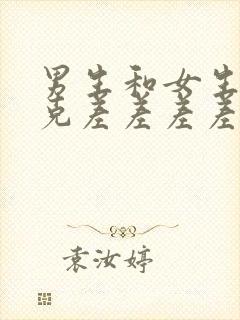 男生和女生
克差差差差
袁汝婷